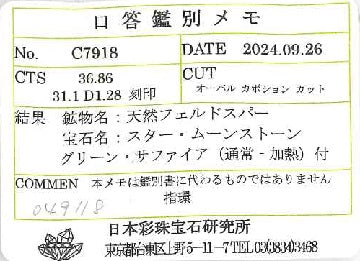 口答鑑別メモ
No. C7918 DATE 2024.09.26
CTS 36.86 CUT
31.1 D1.28 刻印 オーバル カボション カット
結果 鉱物名:天然フェルドスパー
宝石名:スター・ムーンストーン
グリーン・サファイア(通常‐加熱)付
COMMEN 本メモは鑑別書に代わるものではありません
指環
049118
日本彩珠宝石研究所
東京都台東区上野5-11-7 TEL03(3834)3468